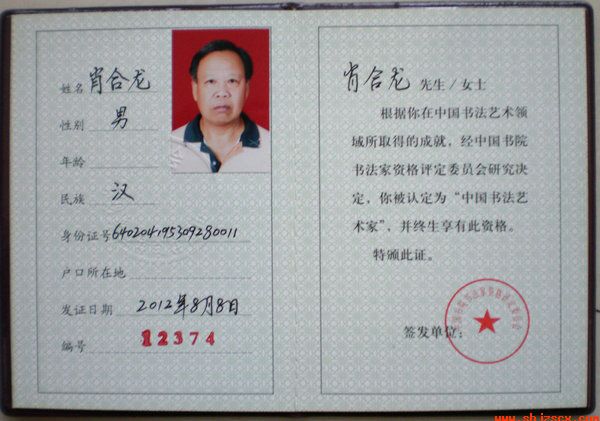 姓名 肖合龙
性别 男
年龄
民族 汉
身份证号 640204195309280011
户口所在地
发证日期 2012年8月8日
编号 12374
肖合龙 先生/女士
根据你在中国书法艺术领
域所取得的成就，经中国书院
书法家资格评定委员会研究决
定，你被认定为“中国书法艺
术家”，并终生享有此资格。
特颁此证。
签发单位：
www.shjzscx.com